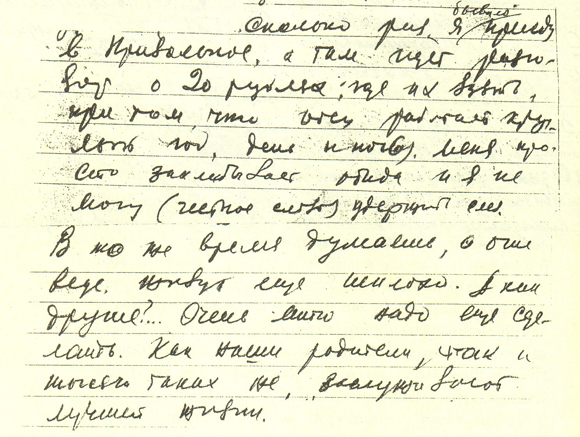 Сколько раз я бывало приеду
в Привольное, а там идет разго-
вор о 20 рублях: где их взять,
при том, что отец работает круг-
лый год, день и ночь. Меня про-
сто захлебывает обида и я не
могу (честное слово) удержать слез.
В то же время думаешь, а они
ведь живут еще неплохо. А как
другие?... Очень много надо еще сде-
лать. Как наши родители, так и
тысячи таких же, заслуживают
лучшей жизни.